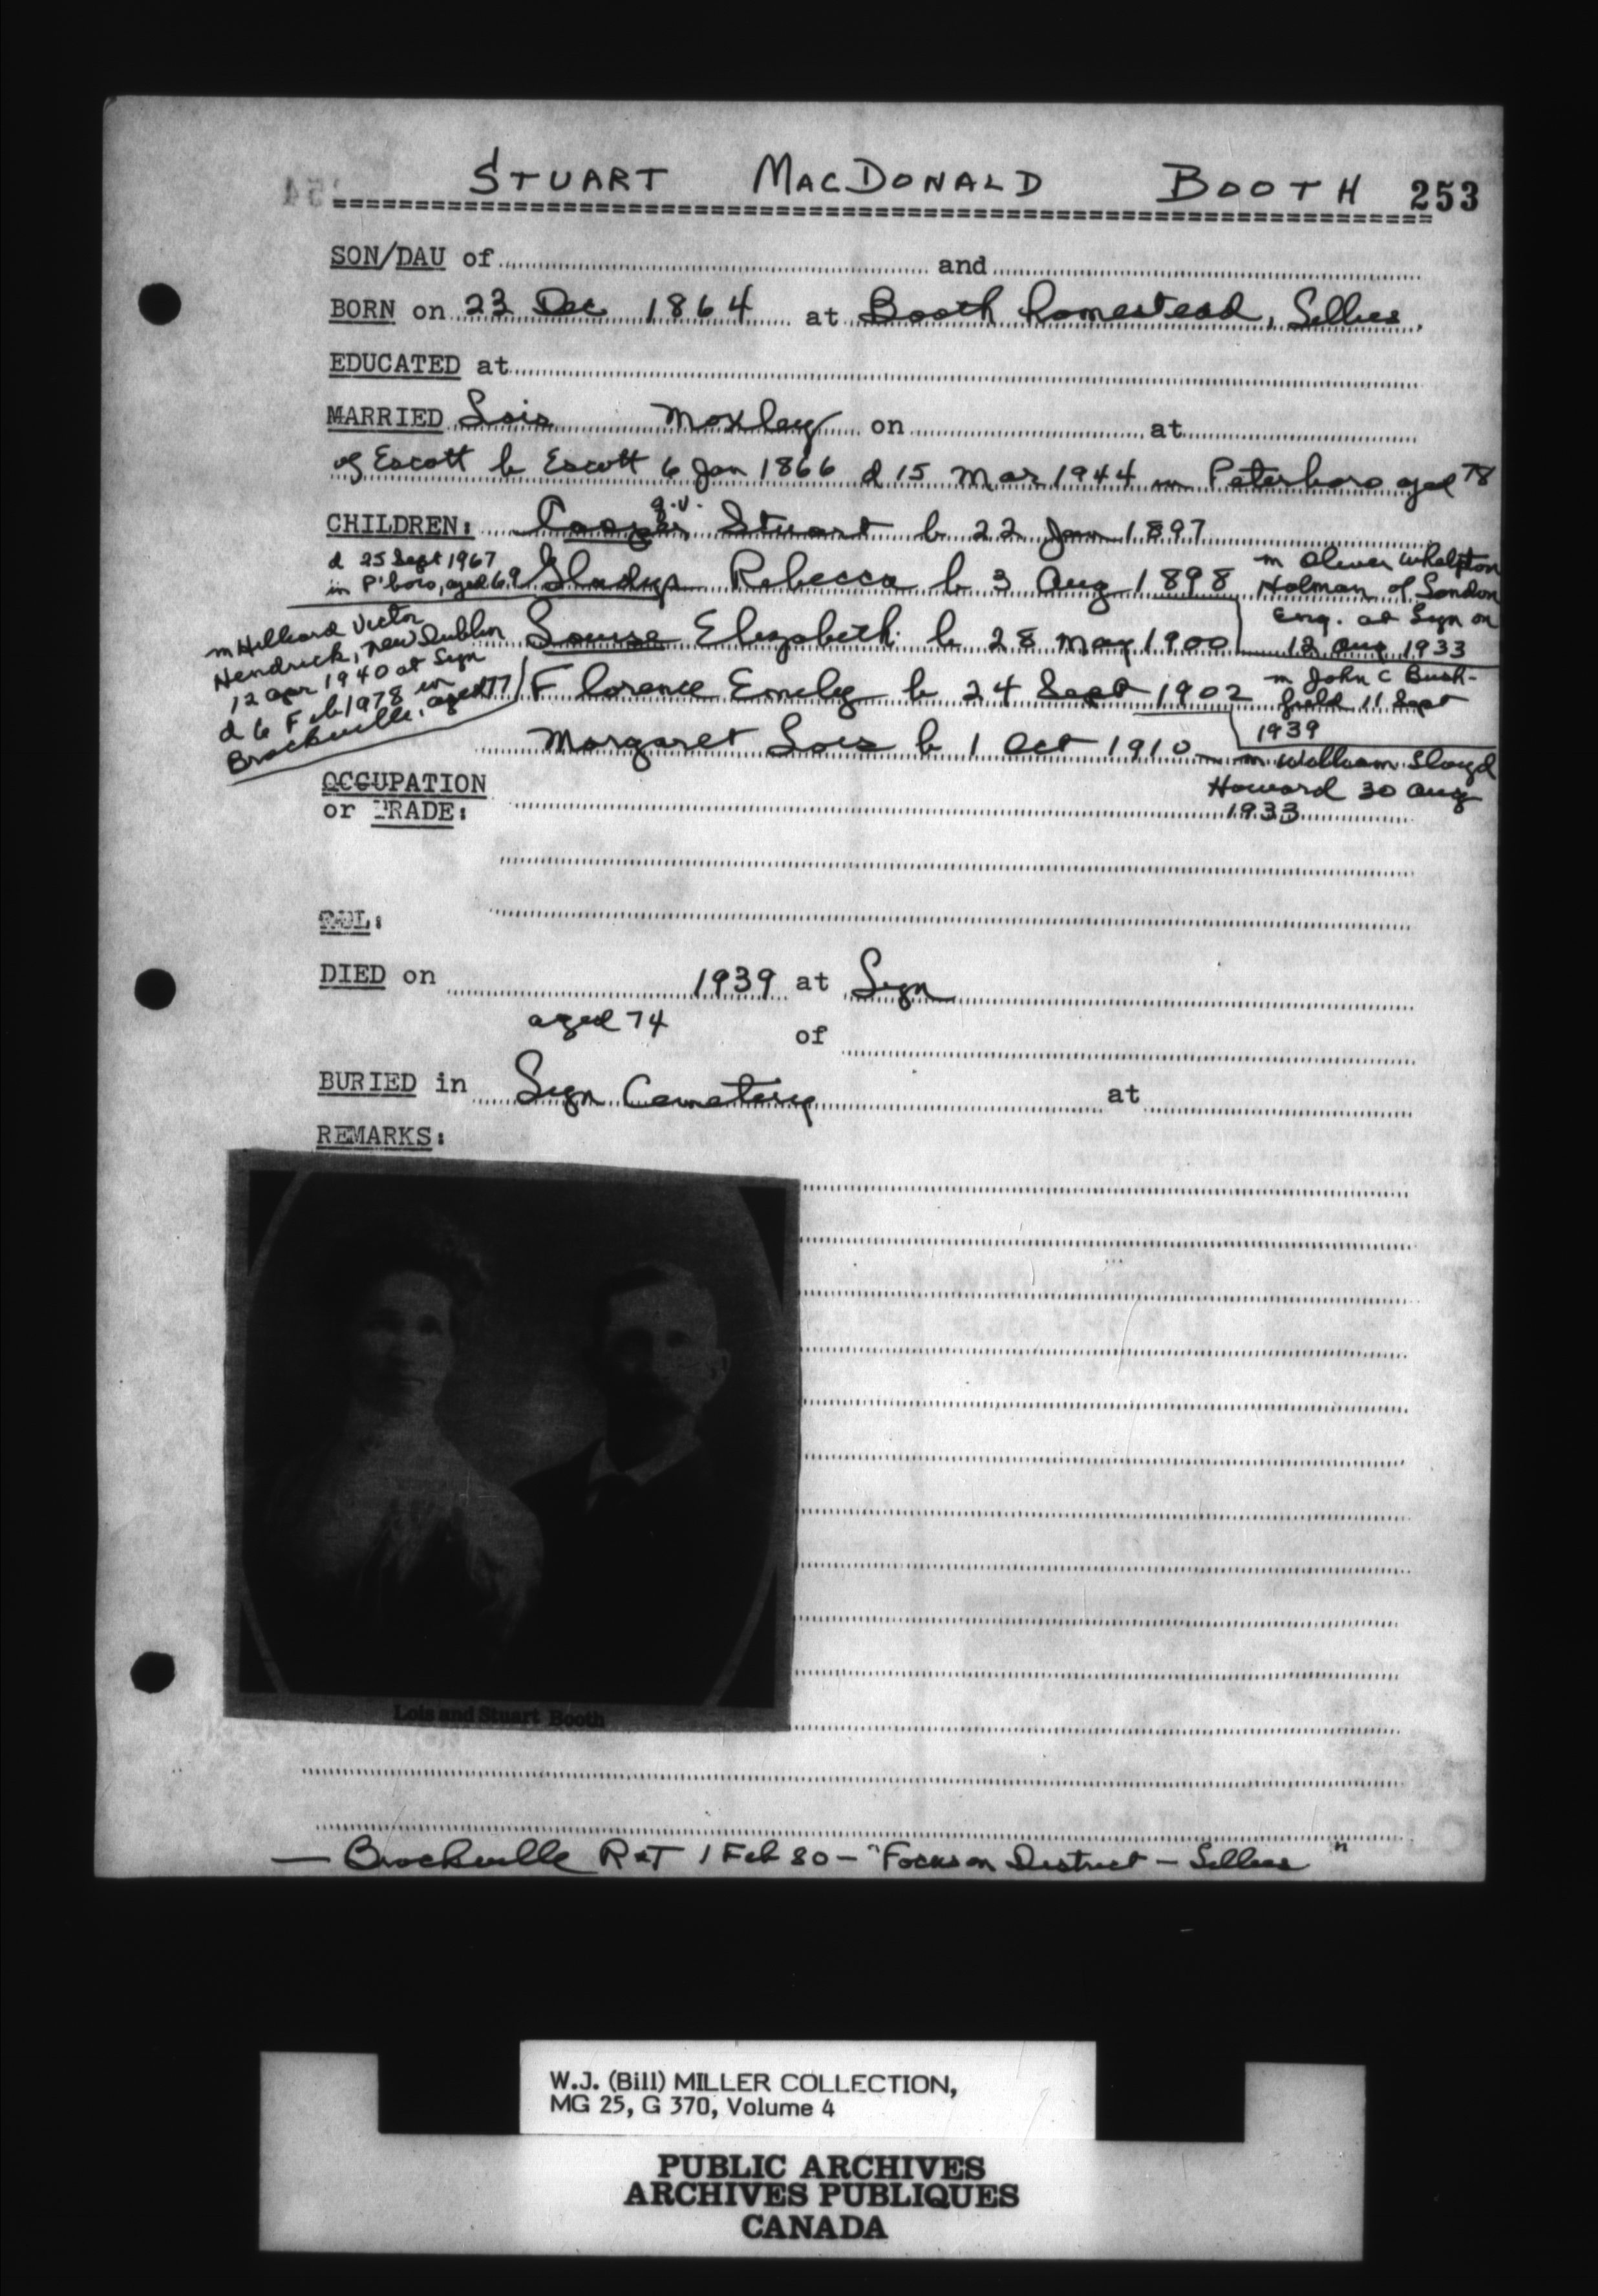 STUART MACDONALD BOOTH 253
SON/DAU of and
BORN on 23 Dec 1864 at Booth homestead, Selleis
EDUCATED at
MARRIED Lois Moxley on at
of Escott b Escott 6 Jan 1866 d 15 Mar 1944 in Peterboro aged 78
q.v.
CHILDREN: Cooper Stuart b 22 Jan 1897
d 25 Sept 1967
in P'boro, aged 69 Gladys Rebecca b 3 Aug 1898
m Oliver Whelpton
Holman of London
Eng. at Lyn on
12 Aug 1933
m Hilliard Victor
Hendrick, New Dublin
12 Apr 1940 at Lyn
d 6 Feb 1978 in
Brockville, aged 77
Louise Elizabeth b 28 May 1900
Florence Emily b 24 Sept 1902
m John C Bush-
field 11 Sept
1939
Margaret Lois b 1 Oct 1910
m William Lloyd
Howard 30 Aug
1933
OCCUPATION
or TRADE:
REL:
DIED on 1939 at Lyn
aged 74
of
BURIED in Lyn Cemetery at
REMARKS:
Lois and Stuart Booth
— Brockville R&T 1 Feb 80 — "Focus on District —
W.J. (Bill) MILLER COLLECTION,
MG 25, G 370, Volume 4
PUBLIC ARCHIVES
ARCHIVES PUBLIQUES
CANADA